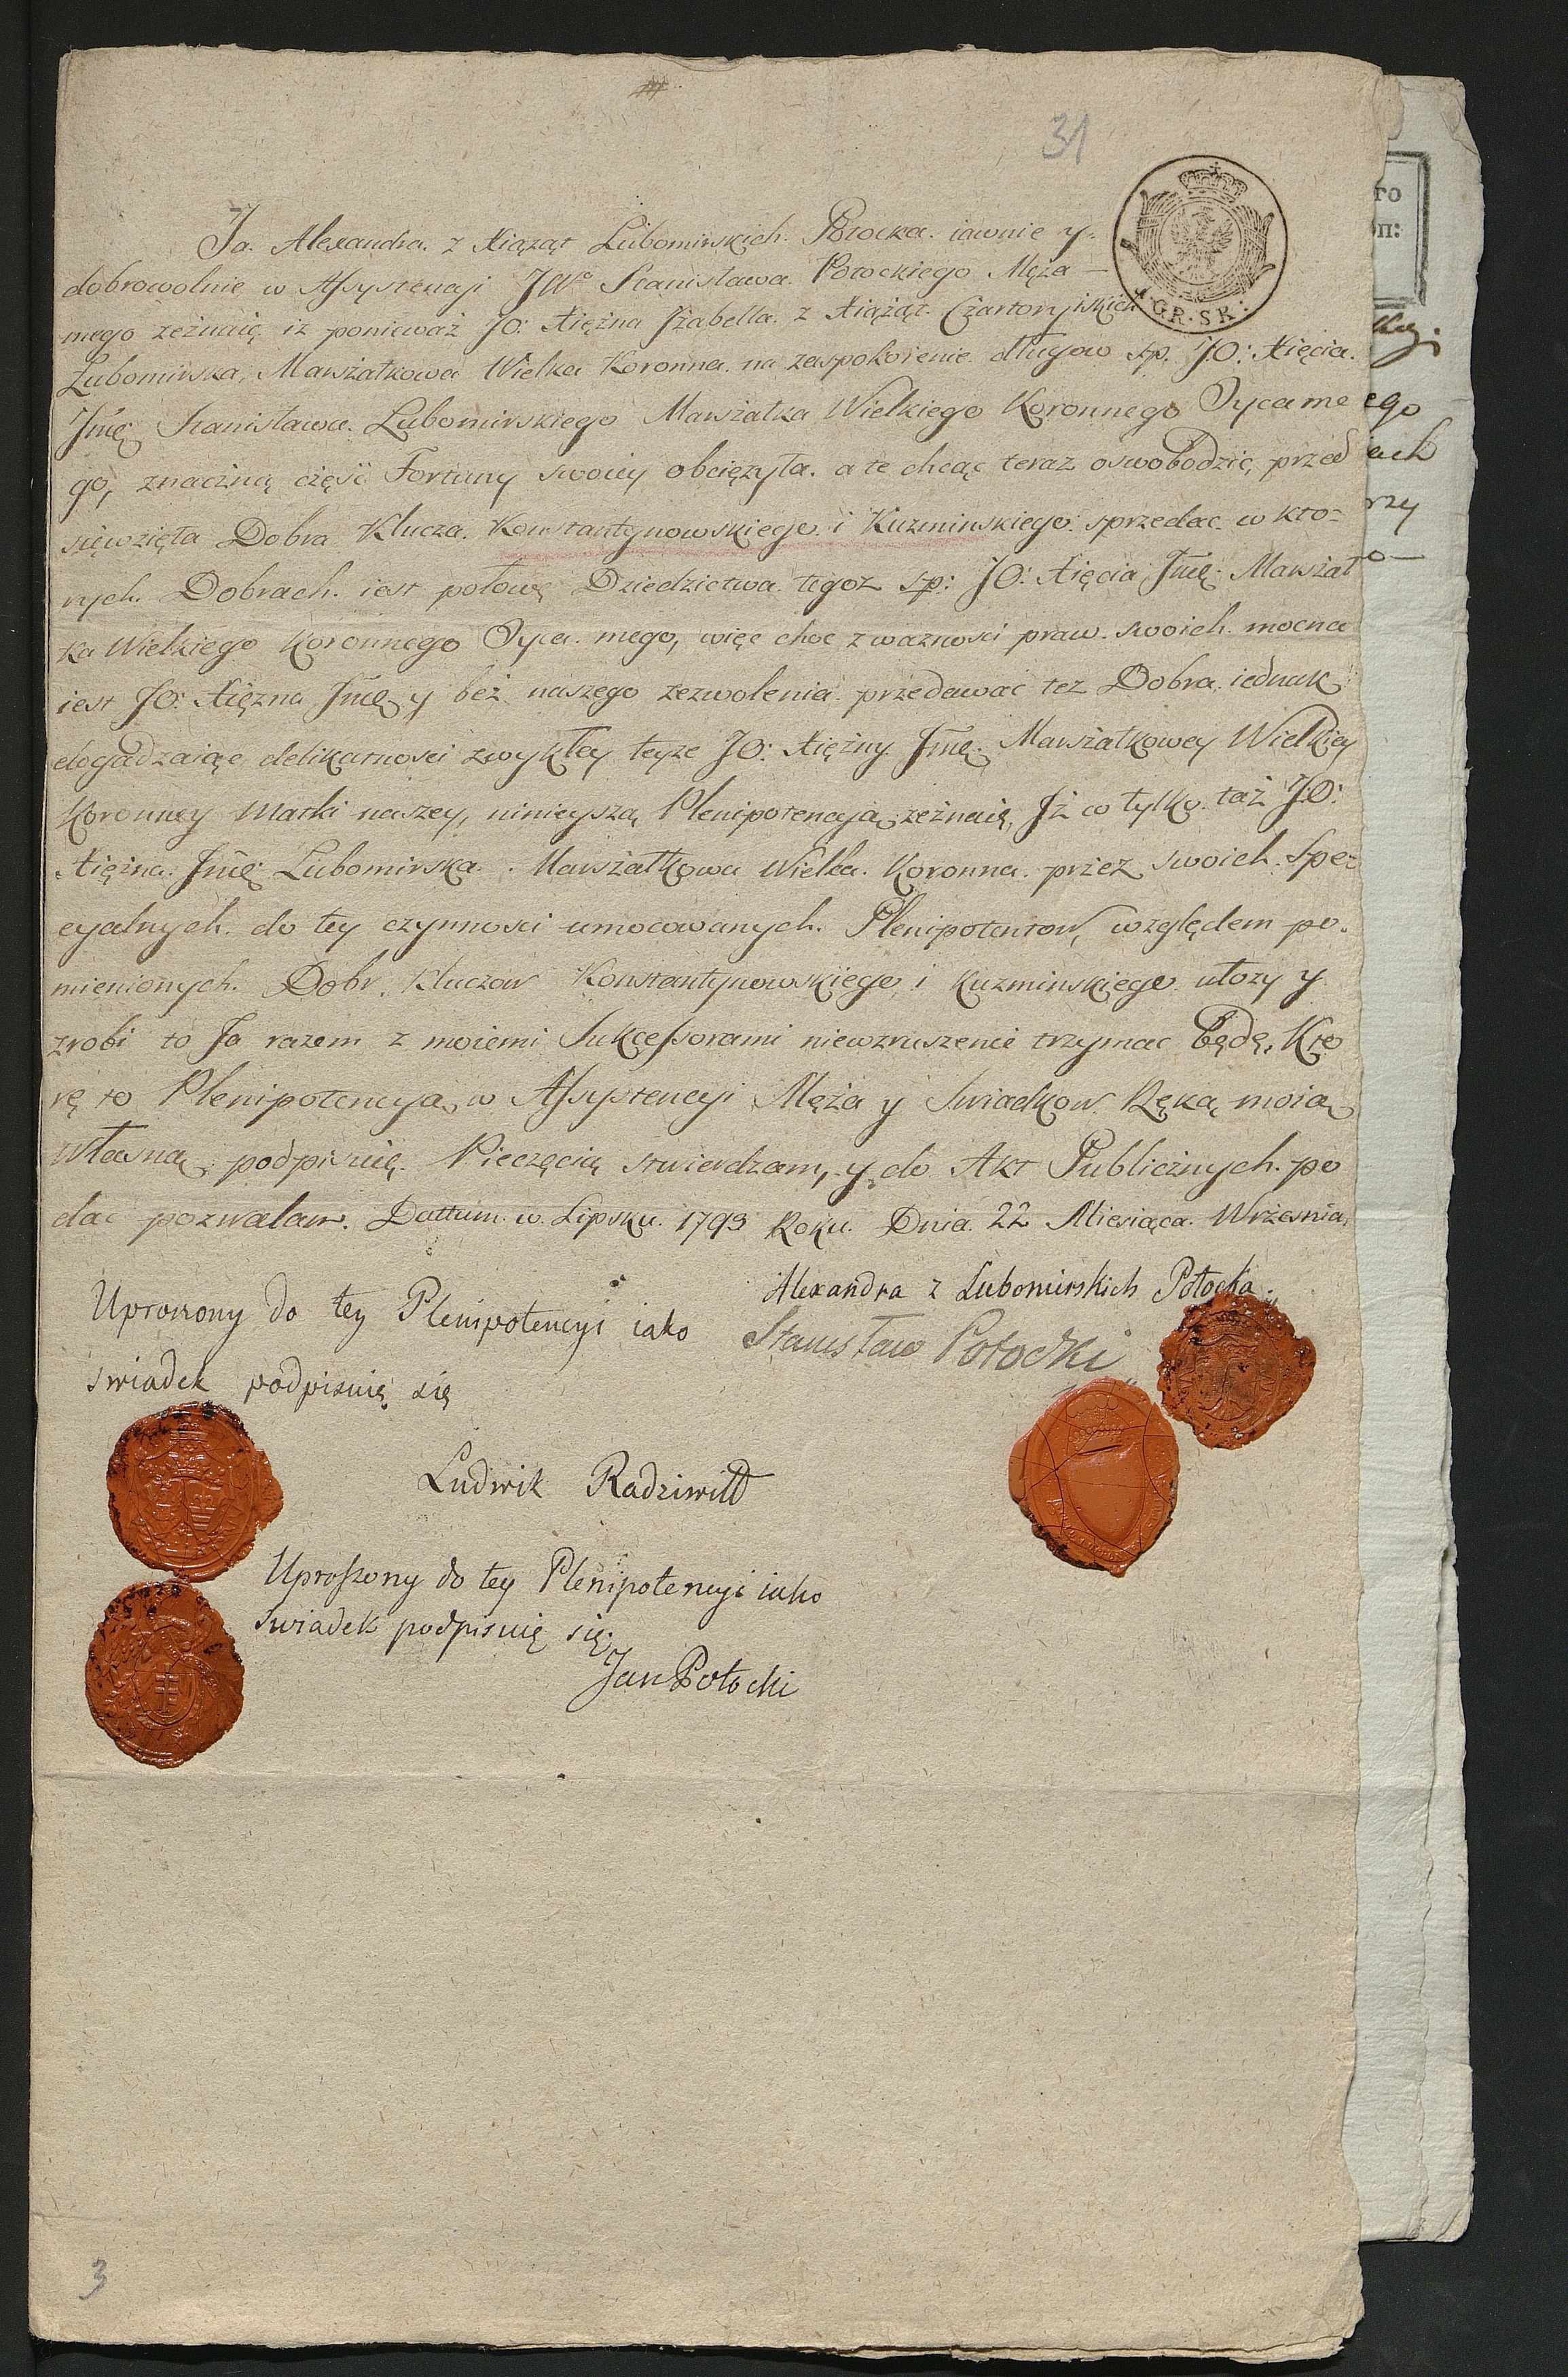 31
4 GR. SR:
Ja Alexandra z Xiążąt Lubomirskich Potocka iawnie y
dobrowolnie w Assystencyi JWo Stanisława Potockiego Męża
mego zeznaię iż ponieważ JO: Xiężna Jzabella z Xiążąt Czartoryiskich
Lubomirska, Marszałkowa Wielka Koronna na zaspokoienie długow sp. JO: Xięcia
Jmę Stanisława Lubomirskiego Marszałka Wielkiego Koronnego Oyca me
go, znaczną część Fortuny swoiey obciężyła. a te chcąc teraz oswobodzić, przed
siewzięła Dobra Klucza Konstantynowskiego i Kuzminskiego sprzedac w kto=
rych Dobrach iest połowę Dziedzictwa tegoz sp: JO: Xięcia Jmę Marszał
ka Wielkiego Koronnego Oyca mego, więc choc z wazności praw swoich mocna
iest JO: Xięzna Jmę y bez naszego zezwolenia przedawać tez Dobra iednak
dogadzaiąc delikatnosci zwykłey teyze JO: Xięzny Jmę Marszałkowey Wielkiey
Koronney Matki naszey, ninieyszą Plenipotencyją zeznaię, Jż co tylko taż JO:
Xięzna Jmę Lubomirska Marszałkowa Wielka Koronna przez swoich Spe=
cyalnych do tey czynnosci umocowanych Plenipotentow, względem po=
mienionych Dobr Kluczow Konstantynowskiego i Kuzminskiego ułozy y
zrobi to Ja razem z moiemi Sukcessorami niewzruszenie trzymac będę, Kto
rę to Plenipotencyą w Assystencyi Męża y Swiadkow Ręką moią
własną podpisuię Pieczęcią stwierdzam, y do Akt Publicznych po
dac pozwalam. Dattum w Lipsku 1793 Roku Dnia 22 Miesiąca Wrzesnia
Alexandra z Lubomirskich Potocka
Stanisław Potocki
Uproszony do tey Plenipotencyi iako
swiadek podpisuię się
Ludwik Radziwiłł
Uproszony do tey Plenipotencyi iako
swiadek podpisuię się
Jan Potocki
3
ego
ach
rzy